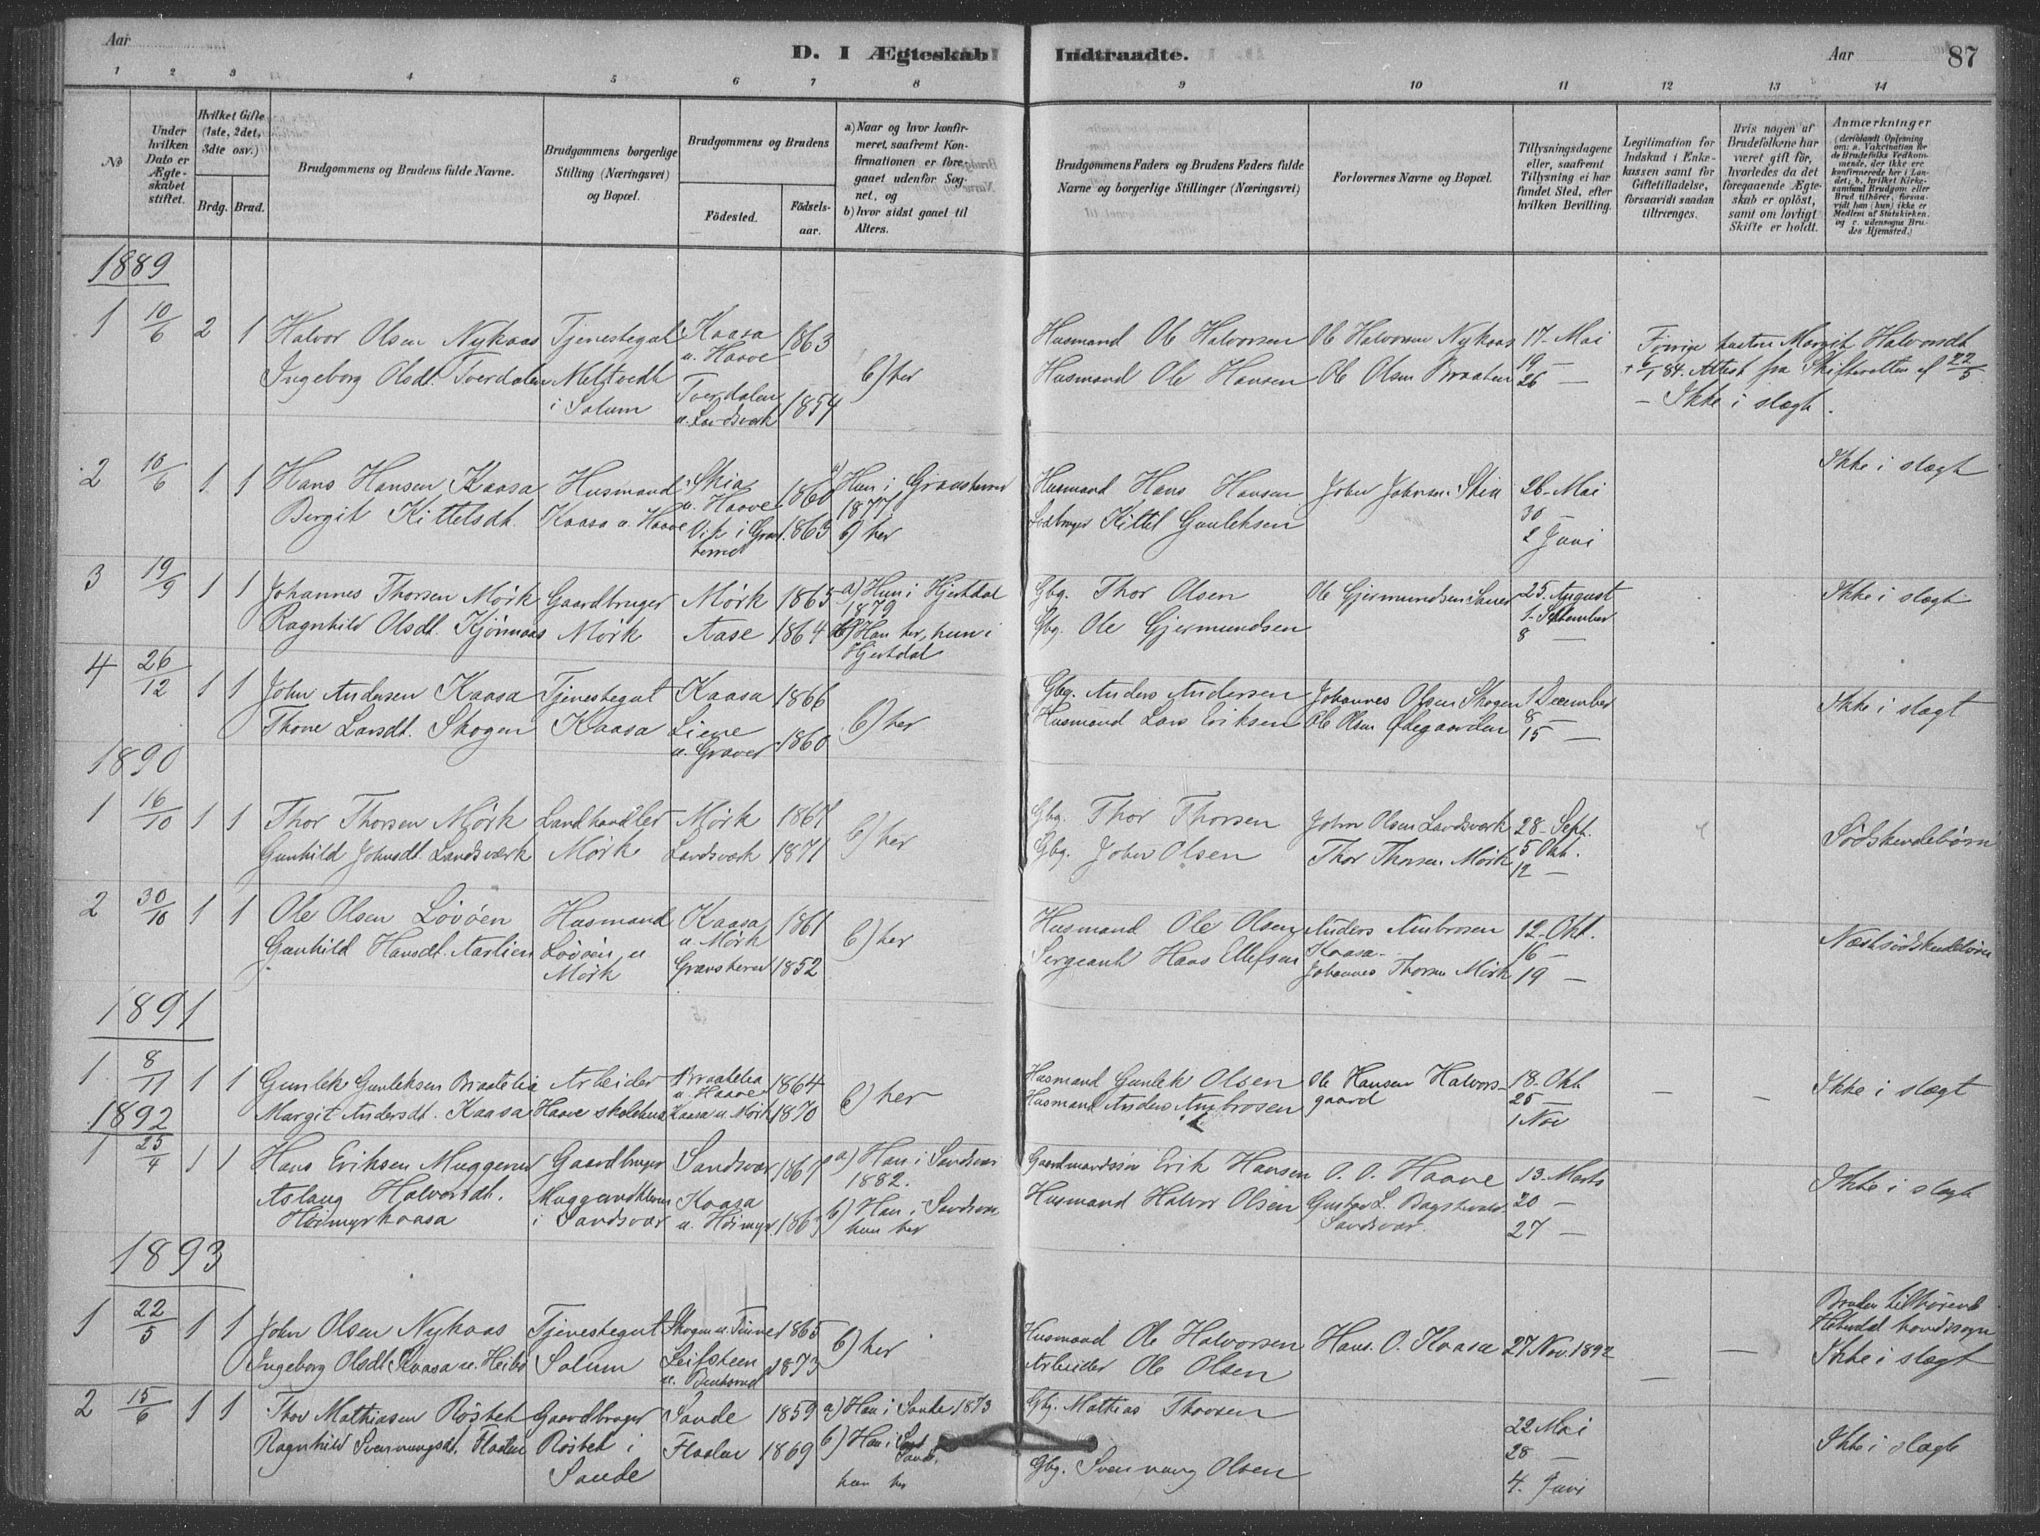 Aar
D. I Ægteskab Indtraadte.
Aar
87
1 2 3 4 5 6 7 8 9 10 11 12 13 14
No
Under hvilken Dato er Ægteskabet stiftet.
Hvilket Gifte (1ste, 2det, 3die osv.)
Brdg. Brud.
Brudgommens og Brudens fulde Navne.
Brudgommens borgerlige Stilling (Næringsvei) og Bopæl.
Brudgommens og Brudens
Födested.
Födsels-aar.
a) Naar og hvor konfirmeret, saafremt Konfirmationen er foregaaet udenfor Sognet, og
b) hvor sidst gaaet til Alters.
Brudgommens Faders og Brudens Faders fulde Navne og borgerlige Stillinger (Næringsvei)
Forlovernes Navne og Bopæl.
Tillysningsdagene eller, saafremt Tillysning ei har fundet Sted, efter hvilken Bevilling.
Legitimation for Indskud i Enkekassen samt for Giftetilladelse, forsaavidt saadan tiltrænges.
Hvis nogen af Brudefolkene har været gift för, hvorledes da det foregaaende Ægteskab er oplöst, samt om lovligt Skifte er holdt.
Anmærkninger
(deriblandt Oplysning om: a. Vaccination for de Brudefolks Vedkommende, der ikke ere konfirmerede her i Landet; b. hvilket Kirkesamfund Brudgom eller Brud tilhörer, forsaavidt han (hun) ikke er Medlem af Statskirken, og c. udensogns Brudes Hjemsted.)
1889
1 10/6 2 1 Halvor Olsen Nykaas Tjenestegut Kaasa 1863 Husmand Ole Halvorsen Ole Halvorsen Nykaas 17. Mai
u. Haave b) her 19 —
Ingeborg Olsdt. Tverdalen Melstvedt Tverdalen 1854 Husmand Ole Hansen Ole Olsen Braaten 26 —
i Solum u. Landsverk
Forrige hustru Margit Halvorsdt.
+ 6/1 84. Attest fra Skifteretten af 22/5.
— Ikke i slægt.
2 10/6 1 1 Hans Hansen Kaasa Husmand Skia 1860 a) Han i Gransherred Husmand Hans Hansen John Johnsen Skia 26. Mai Ikke i slægt
u. Haave 1877
Bergit Kittelsdt. Kaasa u. Haave Vik i Gransherred 1863 b) her Kittel Gunleksen 30 —
2 Juni
3 19/9 1 1 Johannes Thorsen Mørk Gaardbruger Mørk 1865 a) Hun i Hjertdal Gbg. Thor Olsen Ole Gjermundsen 25. August Ikke i slægt
1879 1. September
Ragnhild Olsdt. Kjønnaas Mørk Aase 1864 b) Han her, hun i Gbg. Ole Gjermundsen 8 —
Hjertdal
4 26/12 1 1 John Andersen Kaasa Tjenestegut Kaasa 1866 Gbg. Anders Andersen Johannes Olsen Skogen 1 December Ikke i slægt
b) her
Thone Larsdt. Skogen Kaasa Liene 1860 Husmand Lars Eriksen Ole Olsen Ødegaarden 8 —
u. Graver 15 —
1890
1 16/10 1 1 Thor Thorsen Mørk Landhandler Mørk 1867 Gbg. Thor Thorsen John Olsen Landsverk 28. Sept. Södskendebörn
b) her
Gunhild Johnsdt. Landsværk Mørk Landsværk 1871 Gbg. John Olsen Thor Thorsen Mørk 5 Okt.
12 —
2 30/10 1 1 Ole Olsen Løvöen Husmand Kaasa 1861 Husmand Ole Olsen Anders Ambrosen 12. Okt. Næstsödskendebörn
u. Mørk b) her Kaasa 16 —
Gunhild Hansdt. Aaslien Løvöen u Gransherred 1852 Sergeant Hans Ellefsen Johannes Thorsen Mørk 19 —
Mørk
1891
1 8/11 1 1 Gunlek Gunleksen Braatelia Arbeider Braatelia 1864 Husmand Gunlek Olsen Ole Hansen Halvorsgaard 18. Okt — — Ikke i slægt
u. Haave b) her 25 —
Margit Andersdt. Kaasa Haave skolehus Kaasa u. Mørk 1870 Husmand Anders Ambrosen 1 Nov
1892
1 25/4 1 1 Hans Eriksen Muggerud Gaardbruger Sandsvær 1867 a) Han i Sandsvær Gaardmandssön Erik Hansen O. O. Haave 13. Marts Ikke i slægt
1882.
Aslaug Halvorsdt. i Sandsvær Kaasa b) Han i Sandsvær Husmand Halvor Olsen Gustav L. 20 —
Höimyrkaasa u. Höimyr 1863 hun her Sandsvær. 27 —
1893
1 22/5 1 1 John Olsen Nykaas Tjenestegut Skogen u. Tinne 1865 Husmand Ole Halvorsen Hans O. Kaasa 27 Nov. 1892 — — Bruden tilhörende
b) her Hitterdal hovedsogn
Ingeborg Olsdt. Kaasa u. Heibø Solum Leifsteen 1873 Arbeider Ole Olsen Ikke i slægt
2 15/6 1 1 Thor Mathiasen Röstet Gaardbruger Sande 1859 a) Han i Sande 1873 Gbg. Mathias Thorsen 22 Mai Ikke i slægt
Ragnhild Svennungsdt. Haatun Röstet i 1869 b) Han i Sande, Gbg. Svennung Olsen 28 —
Sande hun her 4. Juni